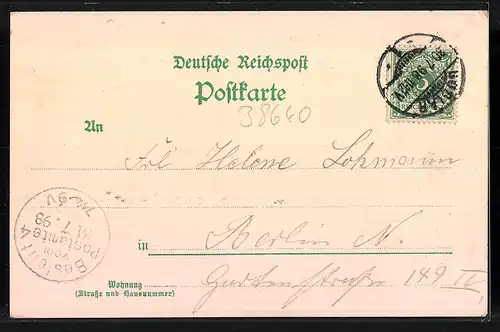 Deutsche Reichspost
Postkarte
38640
An
Frl Helene Lohmann
in Berlin N.
Wohnung
(Straße und Hausnummer)
Gartenstraße 149 IV
Bestellt
vom
Postamte 4
31.7.98